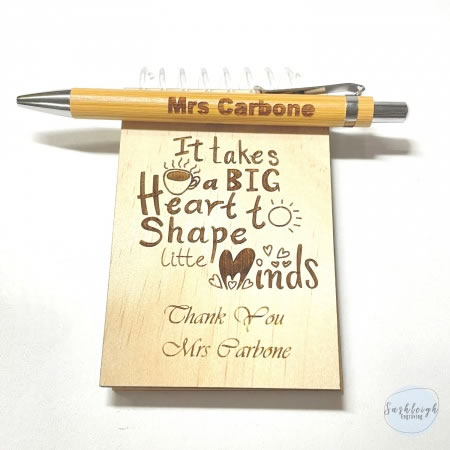 Mrs Carbone
It takes
a BIG
Heart to
Shape
little
Minds
Thank You
Mrs Carbone
Sashleigh
Engraving